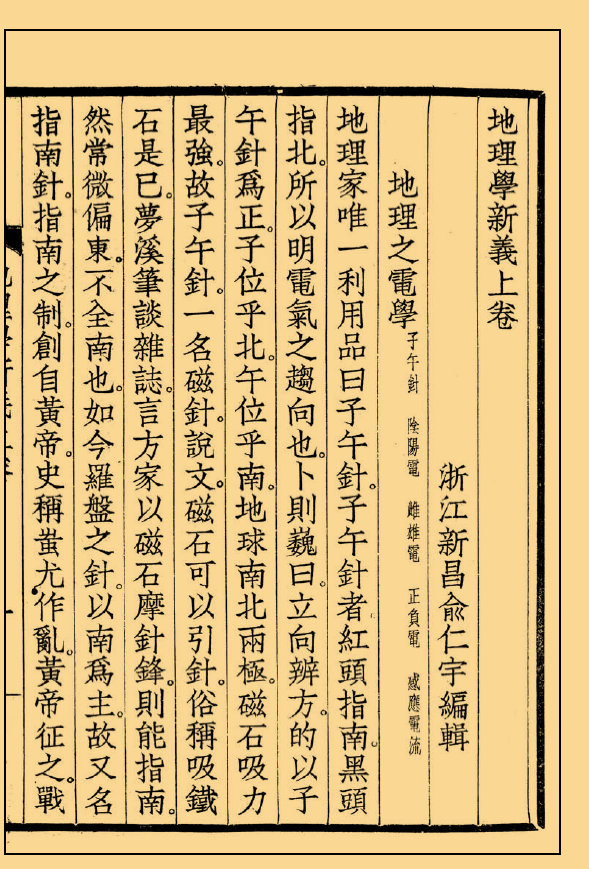 地理學新義上卷
浙江新昌俞仁宇編輯
地理之電學 子午針 陰陽電 雌雄電 正負電 感應電流
地理家唯一利用品曰子午針。子午針者紅頭指南。黑頭
指北。所以明電氣之趨向也。卜則巍曰。立向辨方。的以子
午針爲正。子位乎北。午位乎南。地球南北兩極。磁石吸力
最強。故子午針。一名磁針。說文。磁石可以引針。俗稱吸鐵
石是巳。夢溪筆談雜誌。言方家以磁石摩針鋒。則能指南。
然常微偏東。不全南也。如今羅盤之針。以南爲主。故又名
指南針。指南之制。創自黃帝。史稱蚩尤作亂。黃帝征之。戰